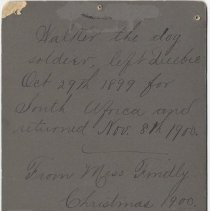 Walter the dog
soldier, left Quebec
Oct 29th 1899 for
South Africa and
returned Nov. 8th 1900.
From Miss Findly.
Christmas 1900.